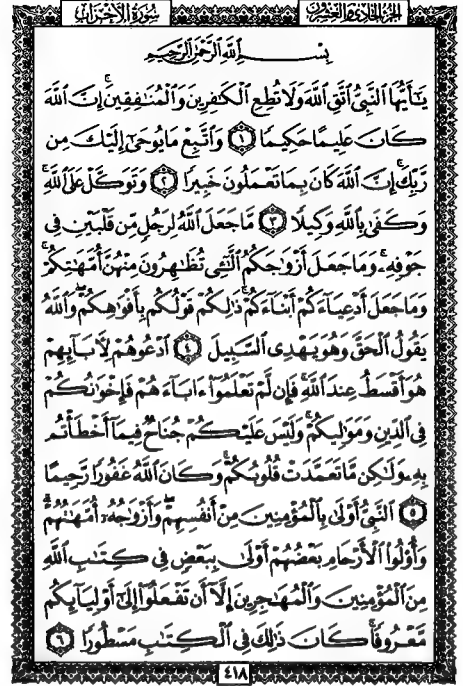 سُورَةُ الأَحْزَابِ
الجُزءُ الحَادِي وَالعِشرُونَ
بِسۡمِ ٱللَّهِ ٱلرَّحۡمَٰنِ ٱلرَّحِيمِ
يَٰٓأَيُّهَا ٱلنَّبِيُّ ٱتَّقِ ٱللَّهَ وَلَا تُطِعِ ٱلۡكَٰفِرِينَ وَٱلۡمُنَٰفِقِينَۚ إِنَّ ٱللَّهَ
كَانَ عَلِيمًا حَكِيمٗا ١ وَٱتَّبِعۡ مَا يُوحَىٰٓ إِلَيۡكَ مِن
رَّبِّكَۚ إِنَّ ٱللَّهَ كَانَ بِمَا تَعۡمَلُونَ خَبِيرٗا ٢ وَتَوَكَّلۡ عَلَى ٱللَّهِۚ
وَكَفَىٰ بِٱللَّهِ وَكِيلٗا ٣ مَّا جَعَلَ ٱللَّهُ لِرَجُلٖ مِّن قَلۡبَيۡنِ فِي
جَوۡفِهِۦۚ وَمَا جَعَلَ أَزۡوَٰجَكُمُ ٱلَّٰٓـِٔي تُظَٰهِرُونَ مِنۡهُنَّ أُمَّهَٰتِكُمۡۚ
وَمَا جَعَلَ أَدۡعِيَآءَكُمۡ أَبۡنَآءَكُمۡۚ ذَٰلِكُمۡ قَوۡلُكُم بِأَفۡوَٰهِكُمۡۖ وَٱللَّهُ
يَقُولُ ٱلۡحَقَّ وَهُوَ يَهۡدِي ٱلسَّبِيلَ ٤ ٱدۡعُوهُمۡ لِأٓبَآئِهِمۡ
هُوَ أَقۡسَطُ عِندَ ٱللَّهِۚ فَإِن لَّمۡ تَعۡلَمُوٓاْ ءَابَآءَهُمۡ فَإِخۡوَٰنُكُمۡ
فِي ٱلدِّينِ وَمَوَٰلِيكُمۡۚ وَلَيۡسَ عَلَيۡكُمۡ جُنَاحٞ فِيمَآ أَخۡطَأۡتُم
بِهِۦ وَلَٰكِن مَّا تَعَمَّدَتۡ قُلُوبُكُمۡۚ وَكَانَ ٱللَّهُ غَفُورٗا رَّحِيمًا
٥ ٱلنَّبِيُّ أَوۡلَىٰ بِٱلۡمُؤۡمِنِينَ مِنۡ أَنفُسِهِمۡۖ وَأَزۡوَٰجُهُۥٓ أُمَّهَٰتُهُمۡۗ
وَأُوْلُواْ ٱلۡأَرۡحَامِ بَعۡضُهُمۡ أَوۡلَىٰ بِبَعۡضٖ فِي كِتَٰبِ ٱللَّهِ
مِنَ ٱلۡمُؤۡمِنِينَ وَٱلۡمُهَٰجِرِينَ إِلَّآ أَن تَفۡعَلُوٓاْ إِلَىٰٓ أَوۡلِيَآئِكُم
مَّعۡرُوفٗاۚ كَانَ ذَٰلِكَ فِي ٱلۡكِتَٰبِ مَسۡطُورٗا ٦
٤١٨